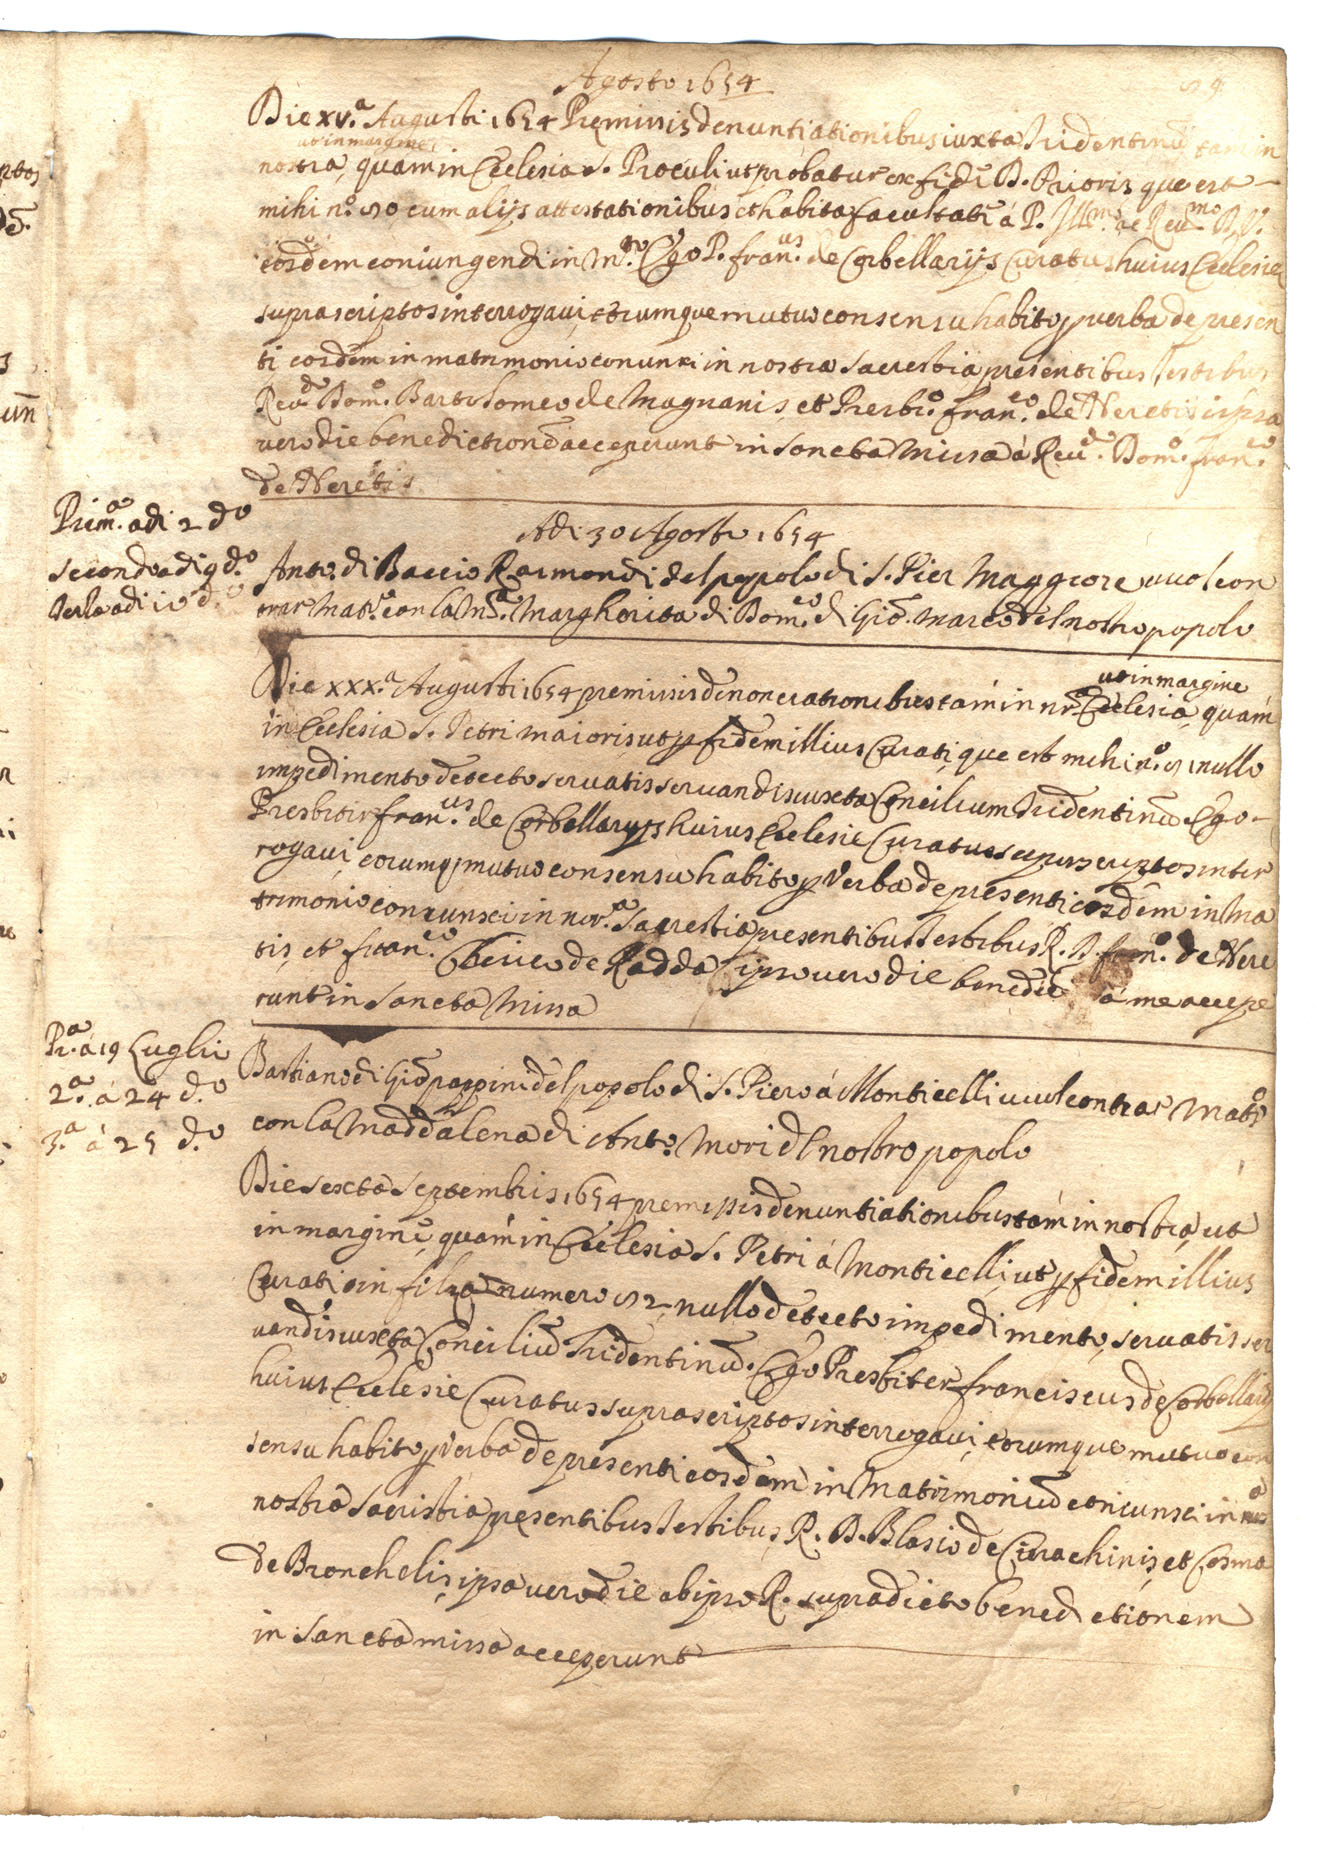 Agosto 1654
59
Die xv.ª Augusti 1654 Premissis denuntiationibus iuxta Tridentinũ tam in
ut in margine
nostra, quam in Ecclesia S. Proculi ut probatur ex fide D. Prioris que est
mihi n.º 50 cum alijs attestationibus et habita facultate à P. Ill.mo ac Reu.mo D. V.
eosdem coniungendi in M.º Ego P. fran.us de Corbellarijs Curatus huius Ecclesie
suprascriptos interrogaui, eorumque mutuo consensu habito p verba de presen
ti eosdem in matrimonio coniunxi in nostra Sacrestia presentibus Testibus
Reu.do Dom.º Bartolomeo de Magnanis et Presb.º fran.co de Neretis ipsa
uero die benedictionẽ acceperunt in Sancta Missa à Reu.do Dom.º fran.co
de Neretis
Prim.ª adi 2 d.º
Seconda adi 9 d.º
Terza adi 10 d.º
Adi 30 Agosto 1654
Ant.º di Baccio Raimondi del popolo di S. Pier Maggiore uuol con
trar Mat.º con la M.ª Margherita di Dom.co di Giõ. Marco del nostro popolo
Die xxx.ª Augusti 1654 premissis denonciationibus tam in nr.ª Ecclesia, quam
ut in margine
in Ecclesia S. Petri maioris, ut p fidem illius Curati, que est mihi n.º 51 nullo
impedimento detecto seruatis seruandis iuxta Concilium Tridentinũ Ego
Presbiter fran.us de Corbellarijs huius Ecclesie Curatus suprascriptos inter
rogaui, eorumq mutuo consensu habito p Verba de presenti eosdem in Ma
trimonio coniunxi in nor.ª Sacrestia presentibus Testibus R. D. fran.º de Nere
tis, et fran.co de Radda ipso uero die benedic̃ à me accepe
runt in Sancta Missa
Pr.ª à 19 Luglio
2.ª à 24 d.º
3.ª à 25 d.º
Bastiano di Giõ pappini del popolo di S. Piero à Monticelli uuol contrar Mat.º
con la Maddalena di Ant.º Mori dl nostro popolo
Die sexta Septembris 1654 premissis denuntiationibus tam in nostra, ut
in margine, quam in Ecclesia S. Petri à Monticelli, ut p fidem illius
Curati in filza numero 52, nullo detecto impedimento, seruatis ser
uandis iuxta Conciliũ Tridentinũ. Ego Presbiter franciscus de Corbellarijs
huius Ecclesie Curatus suprascriptos interrogaui, eorumque mutuo con
sensu habito p Verba de presenti eosdem in Matrimoniũ coniunxi in
nostra Sacristia presentibus Testibus, R. D. Blasio de Curachinis, et Cosma
de Bronchelis, ipsa uero die ab ipso R. supradicto benedictionem
in Sancta missa acceperunt